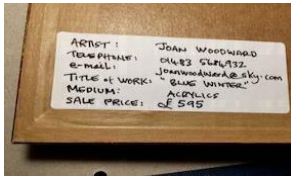 ARTIST : JOAN WOODWARD
TELEPHONE: 01483 5684932
e-mail: joanwoodward@sky.com
TITLE of WORK: "BLUE WINTER"
MEDIUM: ACRYLICS
SALE PRICE: £595